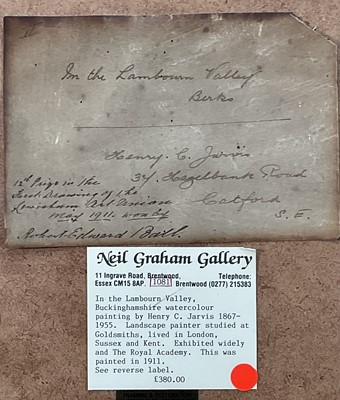 In the Lambourn Valley
Berks
Henry C. Jarvis
34 Hazelbank Road
Catford
S. E.
1st Prize in the
Drawing of the
Lewisham Art Union
May 1911. won by
Robert Edward Ball.
Neil Graham Gallery
11 Ingrave Road, Brentwood, Telephone:
Essex CM15 8AP. 1081 Brentwood (0277) 215383
In the Lambourn Valley,
Buckinghamshire watercolour
painting by Henry C. Jarvis 1867-
1955. Landscape painter studied at
Goldsmiths, lived in London,
Sussex and Kent. Exhibited widely
and The Royal Academy. This was
painted in 1911.
See reverse label.
£380.00